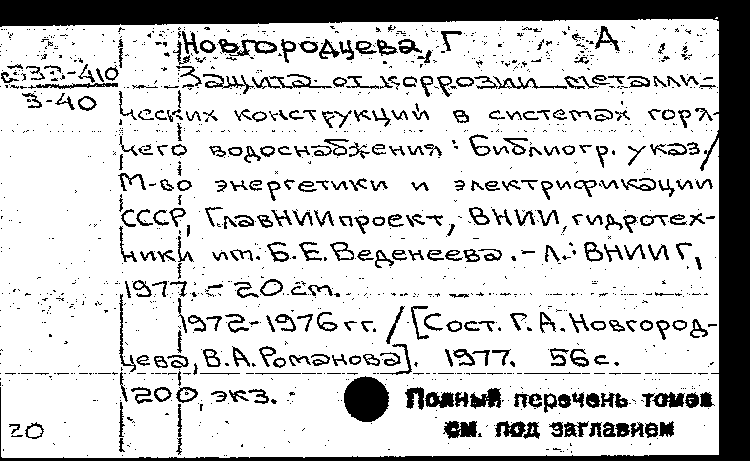 Новгородцева, Г А
с333-410 Защита от коррозии металли-
3-40
ческих конструкций в системах горя-
чего водоснабжения : Библиогр. указ./
М-во энергетики и электрификации
СССР, ГлавНИИпроект, ВНИИ гидротех-
ники им. Б.Е.Веденеева. - Л.: ВНИИГ,
1977. - 20 см.
1972-1976 гг. / [Сост. Г.А.Новгород-
цева, В.А.Романова]. 1977. 56 с.
1200 экз.
Полный перечень томов
см. под заглавием
20